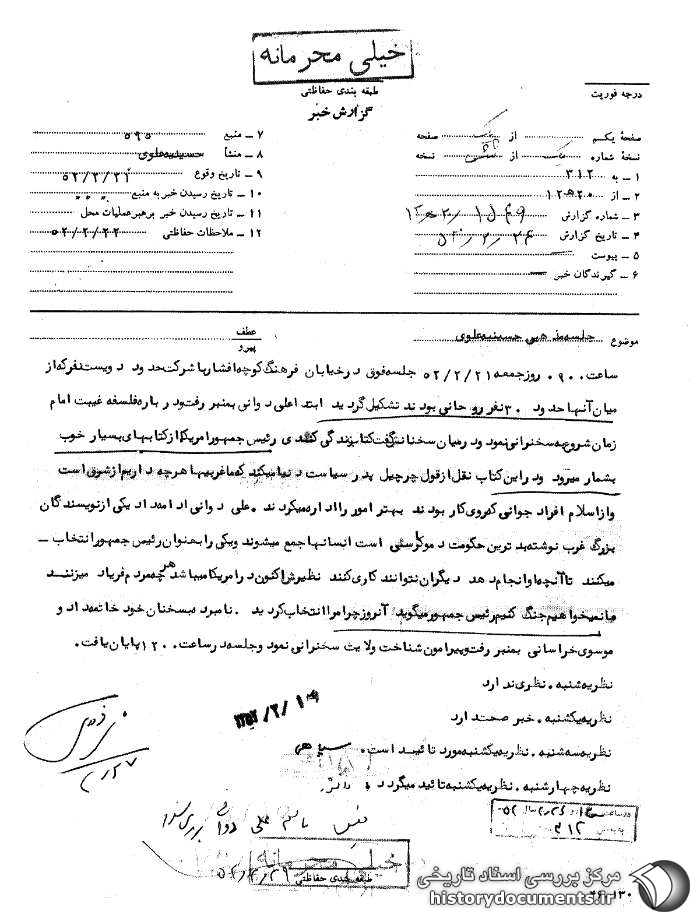 خیلی محرمانه
طبقه بندی حفاظتی
درجه فوریت
گزارش خبر
صفحهٔ یکم از یک صفحه
نسخهٔ شماره یک از نسخه
۱ ــ به ۳۱۲
۲ ــ از ۲۰ ه ۱۲
۳ ــ شماره گزارش
۴ ــ تاریخ گزارش ۵۲/۲/۲۴
۵ ــ پیوست
۶ ــ گیرندگان خبر
۷ ــ منبع ۵۹۵
۸ ــ منشأ حسینیه علوی
۹ ــ تاریخ وقوع ۵۲/۲/۲۱
۱۰ ــ تاریخ رسیدن خبر به منبع
۱۱ ــ تاریخ رسیدن خبر برهبر عملیات محل ۵۲/۲/۲۲
۱۲ ــ ملاحظات حفاظتی
موضوع جلسه مذهبی حسینیه علوی
عطف
پیرو
ساعت ۰۹۰۰ روز جمعه ۵۲/۲/۲۱ جلسه فوق در خیابان فرهنگ کوچه افشار با شرکت حدود دویست نفر که از
میان آنها حدود ۳۰ نفر روحانی بودند تشکیل گردید ابتدا علی دوانی بمنبر رفت و درباره فلسفه غیبت امام
زمان شروع به سخنرانی نمود و در میان سخنانش گفت کتاب زندگی کندی رئیس جمهور امریکا از کتابهای بسیار خوب
بشمار میرود و در این کتاب نقل از قول چرچیل پدر سیاست دنیا میکند که ما غربیها هرچه داریم از شرق است
و از اسلام افراد جوانی که روی کار بودند بهتر امور را اداره میکردند . علی دوانی ادامه داد یکی از نویسندگان
بزرگ غرب نوشته بدترین حکومت دموکراسی است انسانها جمع میشوند و یکی را بعنوان رئیس جمهور انتخاب ــ
میکنند تا آنچه او انجام دهد دیگران نتوانند کاری کنند نظیرش اکنون در امریکا میباشد هرچه مردم فریاد میزنند
ما نمیخواهیم جنگ کنیم رئیس جمهور میگوید آنروز چرا مرا انتخاب کردید . نامبرده بسخنان خود خاتمه داد و
موسوی خراسانی بمنبر رفت و پیرامون شناخت ولایت سخنرانی نمود و جلسه در ساعت ۱۲۰۰ پایان یافت .
نظریه شنبه . نظری ندارد
نظریه یکشنبه . خبر صحت دارد
نظریه سه شنبه . نظریه یکشنبه مورد تائید است .
نظریه چهارشنبه . نظریه یکشنبه تائید میگردد
خیلی محرمانه
طبقه بندی حفاظتی
مرکز بررسی اسناد تاریخی
historydocuments.ir